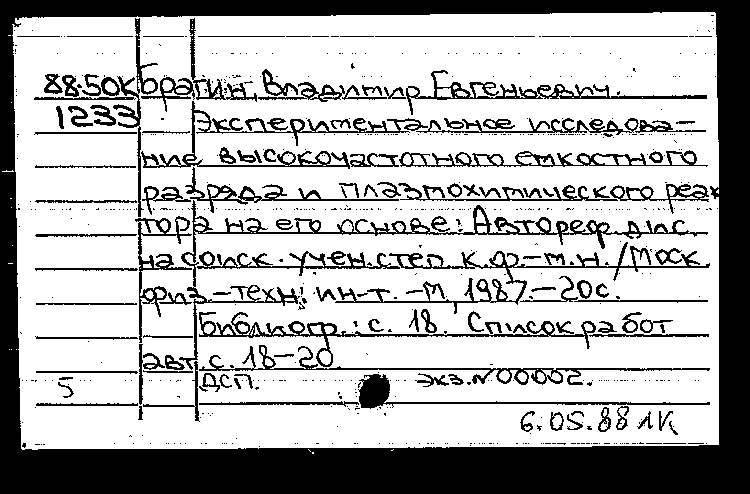 88.50К Брагин, Владимир Евгеньевич.
1233 Экспериментальное исследова-
ние высокочастотного емкостного
разряда и плазмохимического реак
тора на его основе: Автореф. дис.
на соиск. учен. степ. к.ф.-м.н. / Моск.
физ.-техн. ин-т. -М., 1987. -20с.
Библиогр.: с. 18. Список работ
авт. с. 18-20.
5 ДСП. экз. N 00002.
6.05.88 ЛК